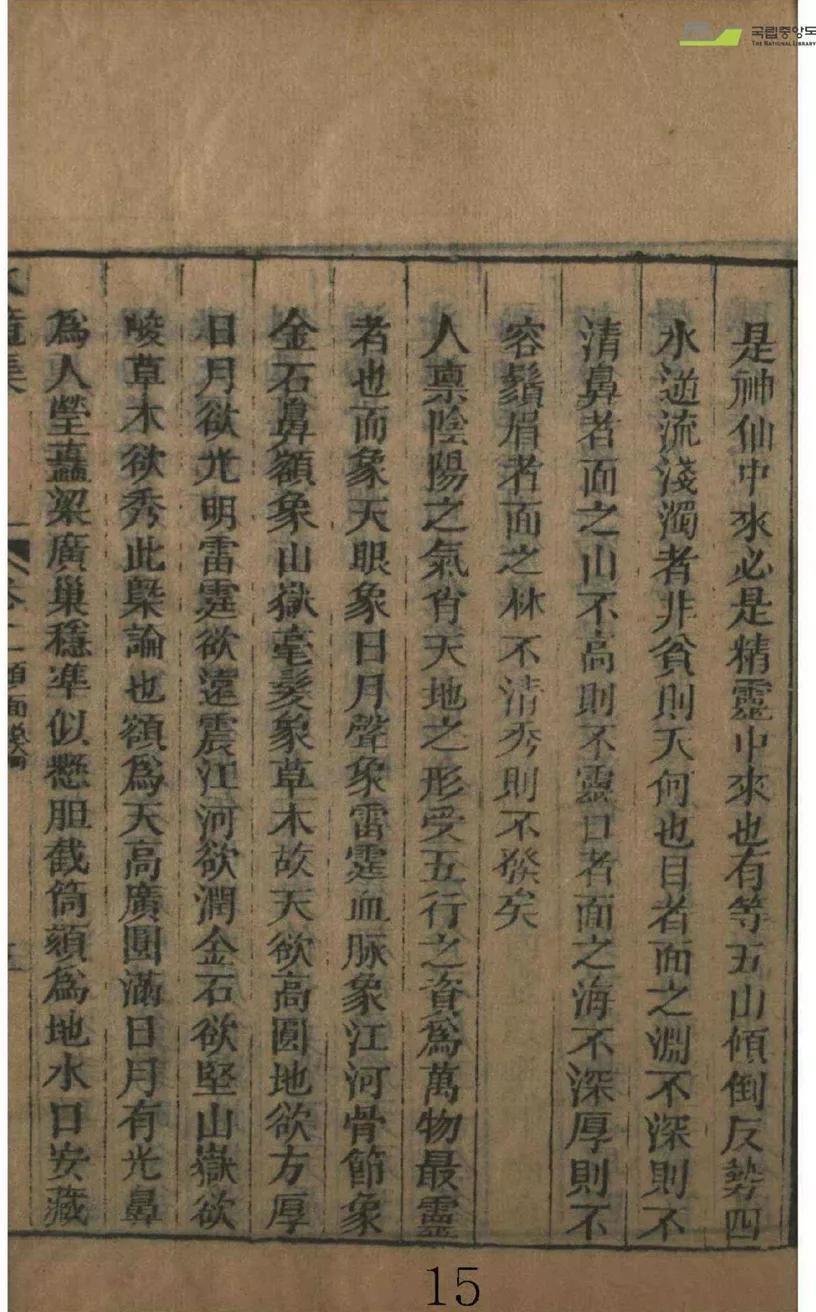 국립중앙도
THE NATIONAL LIBRARY
是神仙中來必是精靈中來也有等五山傾倒反勢四
水逆流淺濁者非貧則夭何也目者面之淵不深則不
清鼻者面之山不高則不靈口者面之海不深厚則不
容鬚眉者面之林不清秀則不發矣
人禀陰陽之氣肖天地之形受五行之資為萬物最靈
者也面象天眼象日月聲象雷霆血脉象江河骨節象
金石鼻額象山嶽毫髮象草木故天欲高圓地欲方厚
日月欲光明雷霆欲遠震江河欲潤金石欲堅山嶽欲
峻草木欲秀此槩論也額為天高廣圓滿日月有光鼻
為人瑩直梁廣巢穩準似懸胆截筒頦為地水口安藏
水鏡集
卷二
15